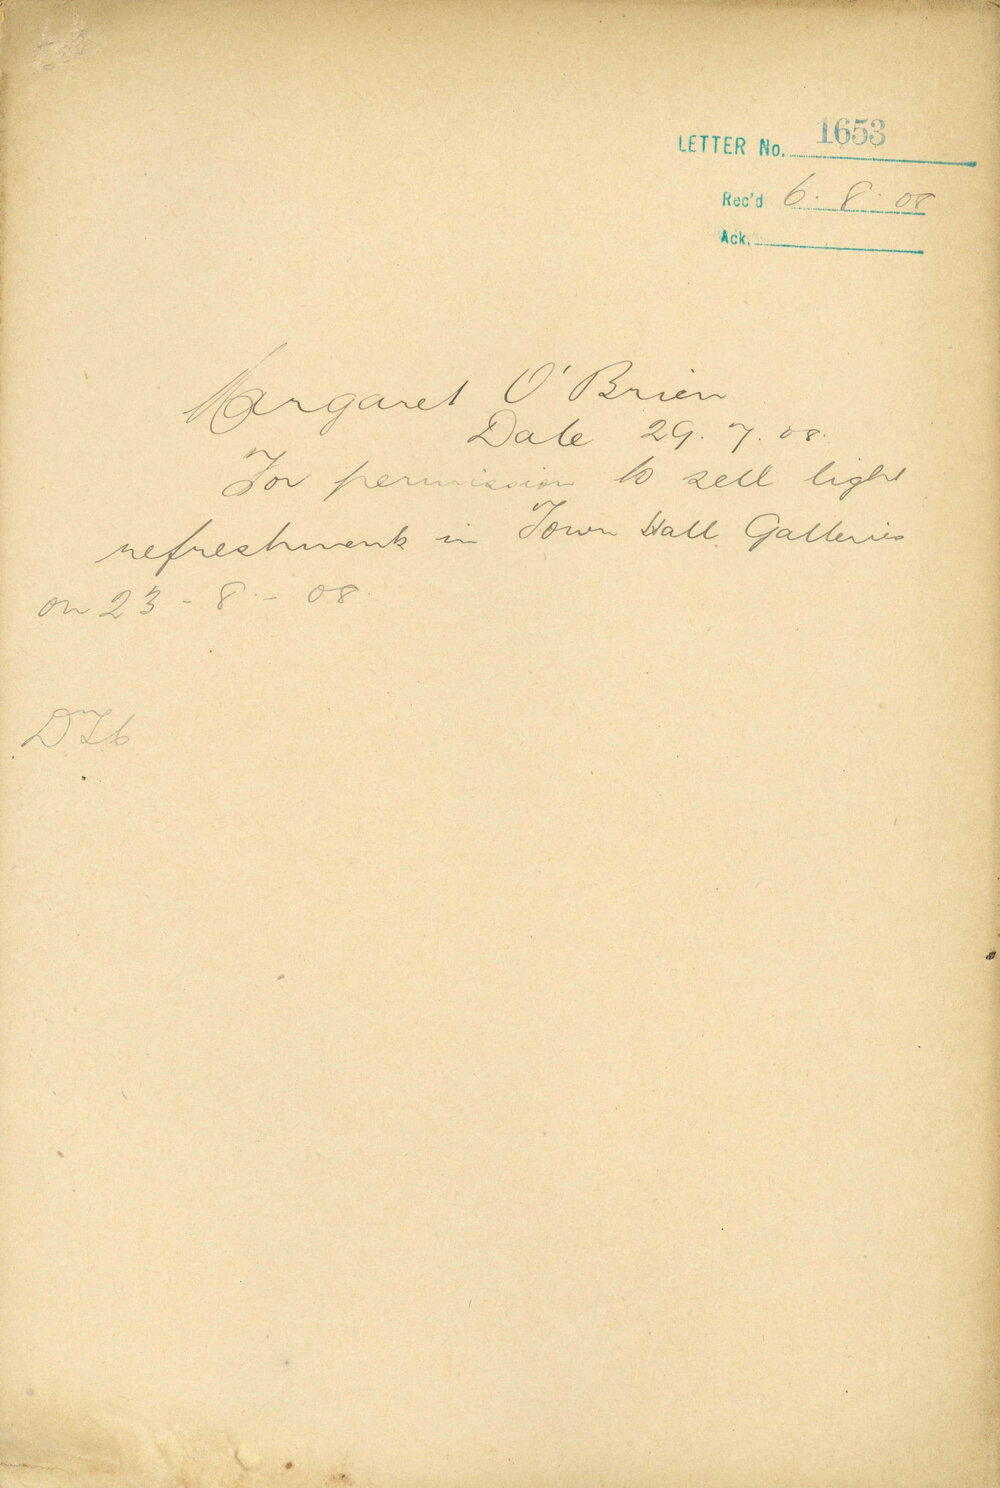 LETTER No. 1653
Rec'd 6. 8. 08
Ack.
Margaret O'Brien
Date 29. 7. 08.
For permission to sell light
refreshment in Town Hall Galleries
on 23 - 8 - 08